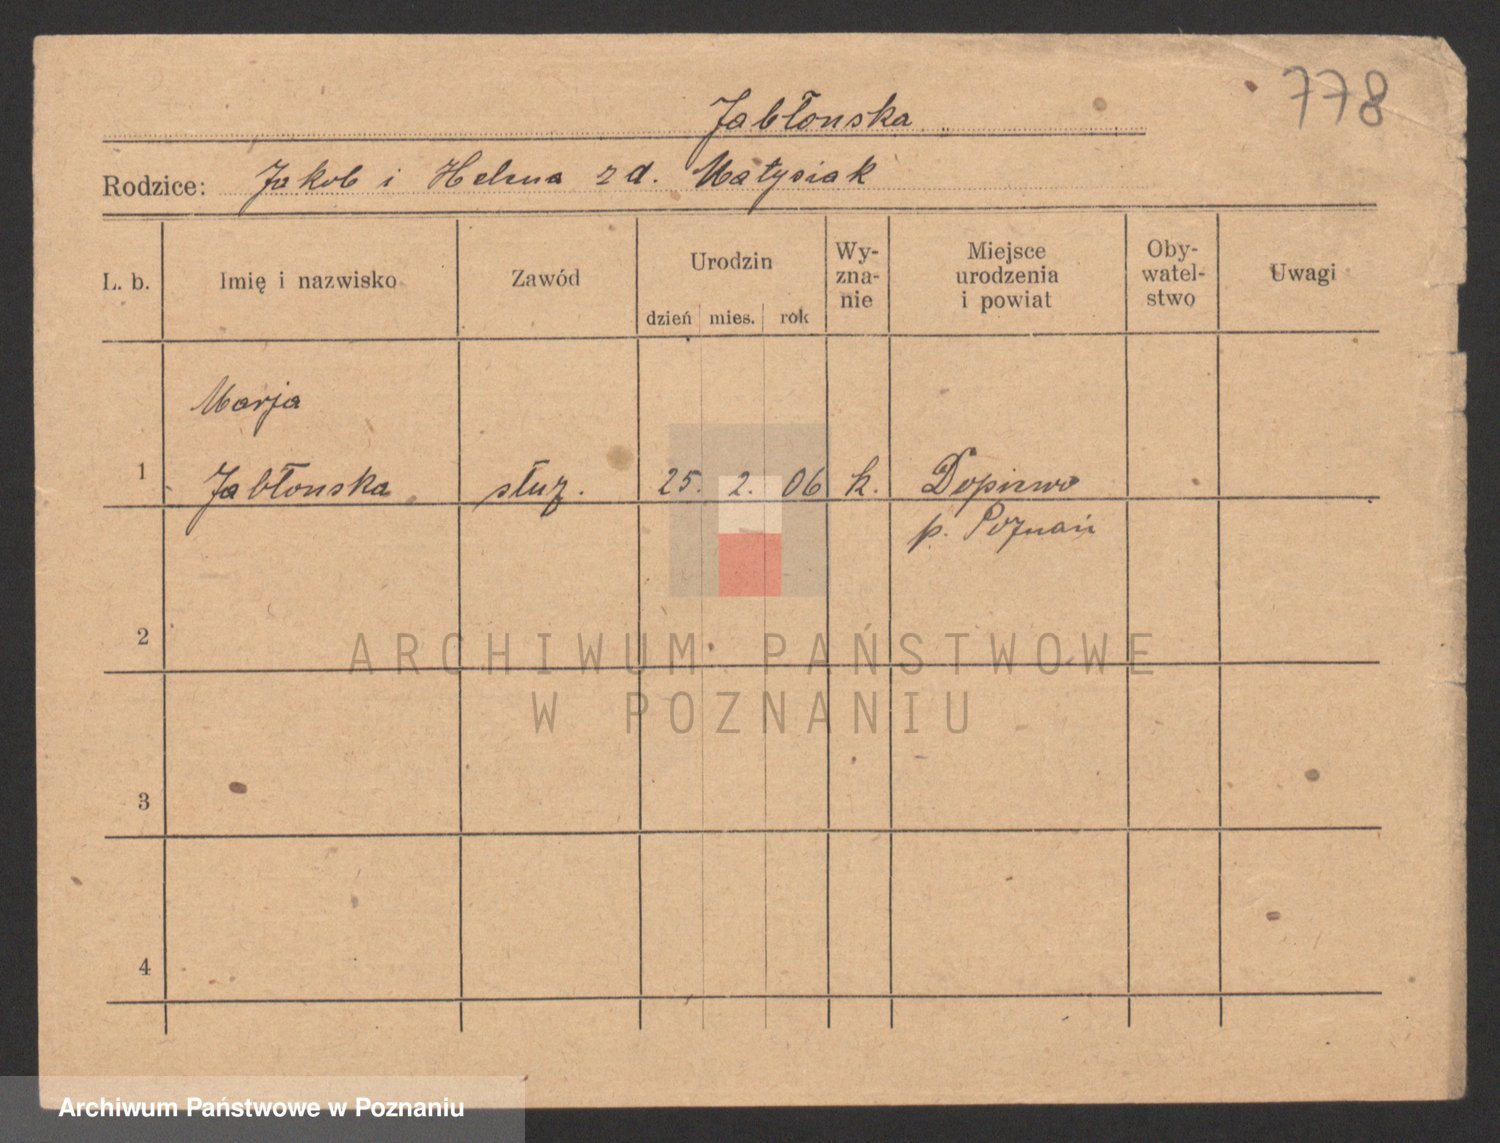 778
Jabłonska
Rodzice: Jakob i Helena z d. Matysiak
L. b. Imię i nazwisko Zawód Urodzin dzień mies. rok Wy-zna-nie Miejsce urodzenia i powiat Oby-watel-stwo Uwagi
Marja
1 Jabłonska służ. 25. 2. 06 k. Dopiewo
p. Poznań
2
ARCHIWUM PAŃSTWOWE
W POZNANIU
3
4
Archiwum Państwowe w Poznaniu